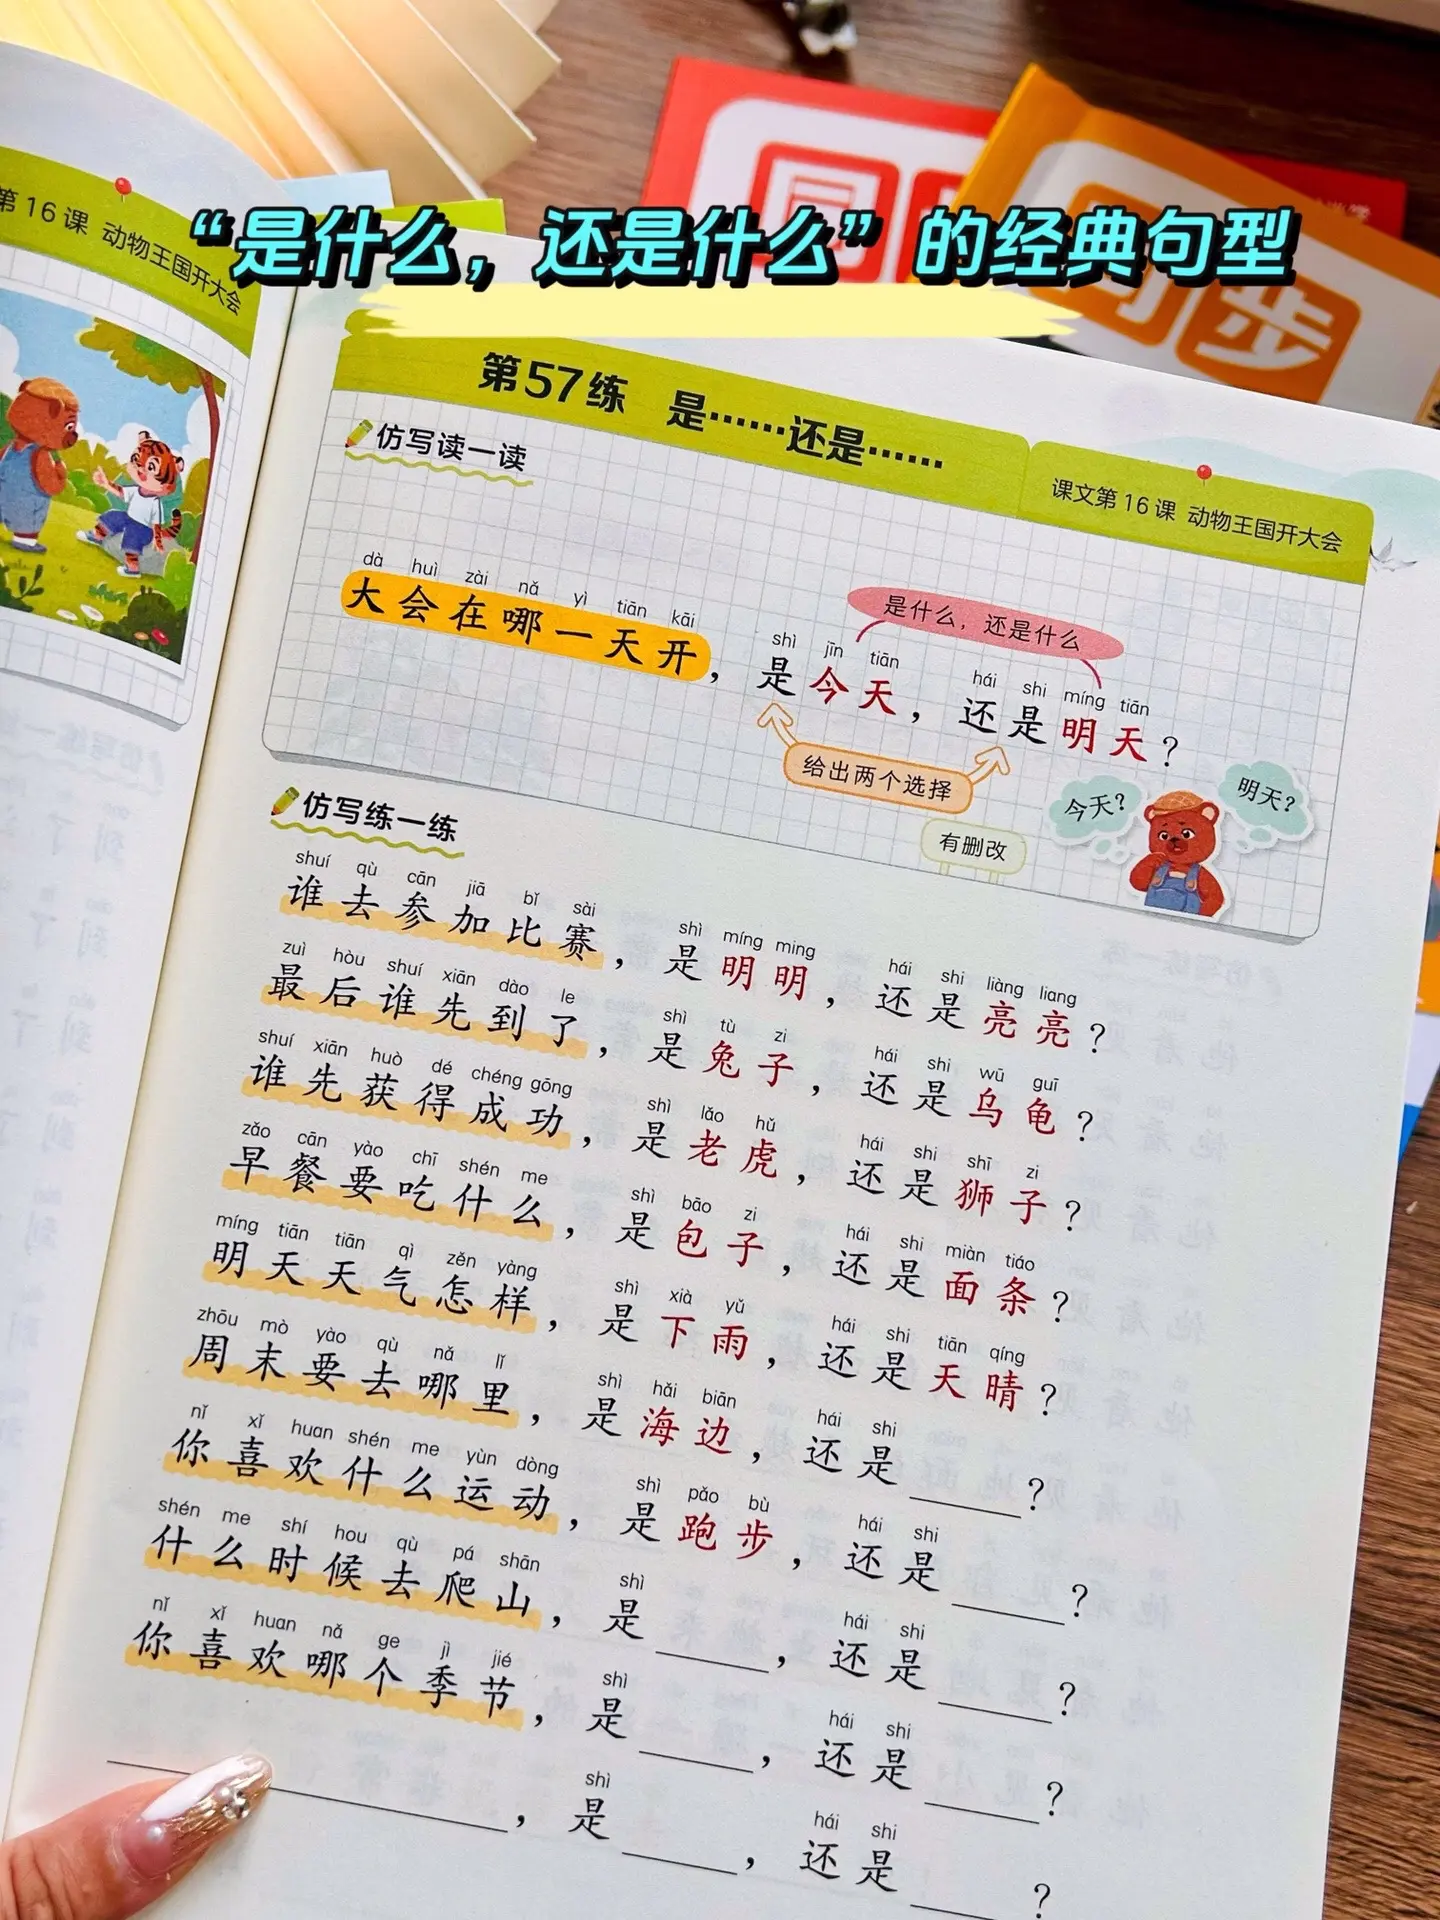 “是什么，还是什么”的经典句型
同
步
第 16 课 动物王国开大会
第57练 是……还是……
课文第 16 课 动物王国开大会
仿写读一读
dà huì zài nǎ yì tiān kāi
大会在哪一天开，
是什么，还是什么
shì jīn tiān hái shi míng tiān
是今天，还是明天？
给出两个选择
今天？
明天？
有删改
仿写练一练
shuí qù cān jiā bǐ sài shì míng ming hái shi liàng liang
谁去参加比赛，是明明，还是亮亮？
zuì hòu shuí xiān dào le shì tù zi hái shi wū guī
最后谁先到了，是兔子，还是乌龟？
shuí xiān huò dé chéng gōng shì lǎo hǔ hái shi shī zi
谁先获得成功，是老虎，还是狮子？
zǎo cān yào chī shén me shì bāo zi hái shi miàn tiáo
早餐要吃什么，是包子，还是面条？
míng tiān tiān qì zěn yàng shì xià yǔ hái shi tiān qíng
明天天气怎样，是下雨，还是天晴？
zhōu mò yào qù nǎ lǐ shì hǎi biān hái shi
周末要去哪里，是海边，还是______？
nǐ xǐ huan shén me yùn dòng shì pǎo bù hái shi
你喜欢什么运动，是跑步，还是______？
shén me shí hou qù pá shān shì hái shi
什么时候去爬山，是______，还是______？
nǐ xǐ huan nǎ ge jì jié shì hái shi
你喜欢哪个季节，是______，还是______？
shì hái shi
______，是______，还是______？